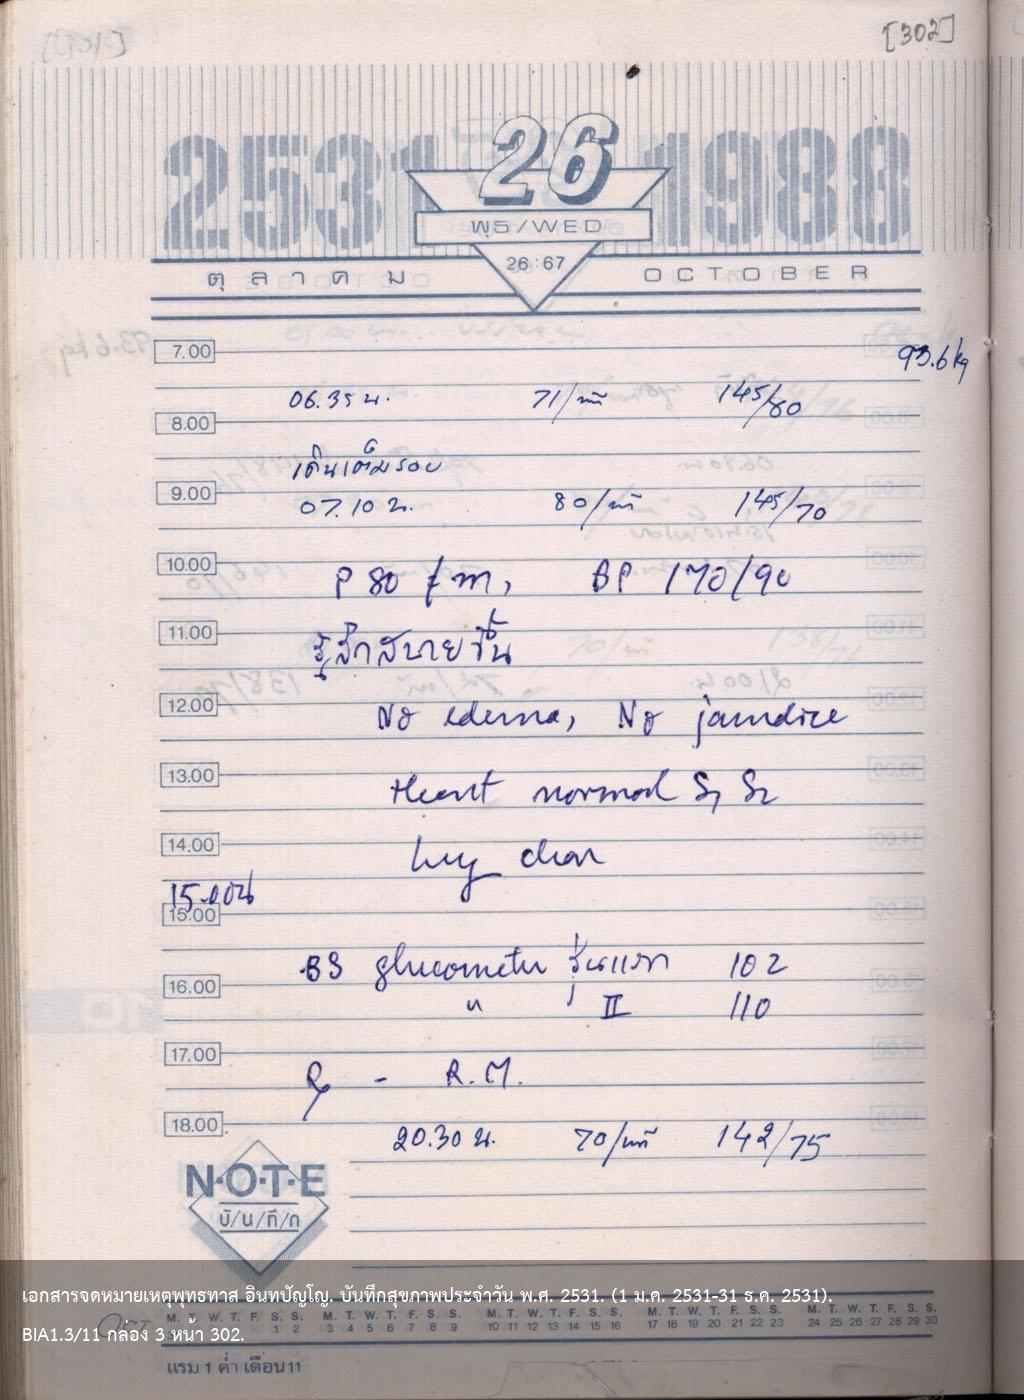 [302]
2531 26 1988
พุธ/WED
26:67
ตุลาคม OCTOBER
7.00
93.6 kg
06.35 น. 71/นาที 145/80
8.00
เดินเต็มรอบ
9.00
07.10 น. 80/นาที 145/70
10.00
P 80 /m, BP 170/90
11.00
รู้สึกสบายขึ้น
12.00
No edema, No jaundice
13.00
Heart normal S1 S2
14.00
Lung clear
15.00น
15.00
BS glucometer รุ่นแรก 102
16.00
" II 110
17.00
Rx - R.M.
18.00
20.30 น. 70/นาที 142/75
N·O·T·E
บั/น/ทึ/ก
เอกสารจดหมายเหตุพุทธทาส อินทปัญโญ. บันทึกสุขภาพประจำวัน พ.ศ. 2531. (1 ม.ค. 2531-31 ธ.ค. 2531).
OCT. M. T. W. T. F. S. S. M. T. W. T. F. S. S. M. T. W. T. F. S. S. M. T. W. T. F. S. S. M. T. W. T. F. S. S.
1 2 3 4 5 6 7 8 9 10 11 12 13 14 15 16 17 18 19 20 21 22 23 24 25 26 27 28 29 30
BIA1.3/11 กล่อง 3 หน้า 302.
แรม 1 ค่ำ เดือน 11